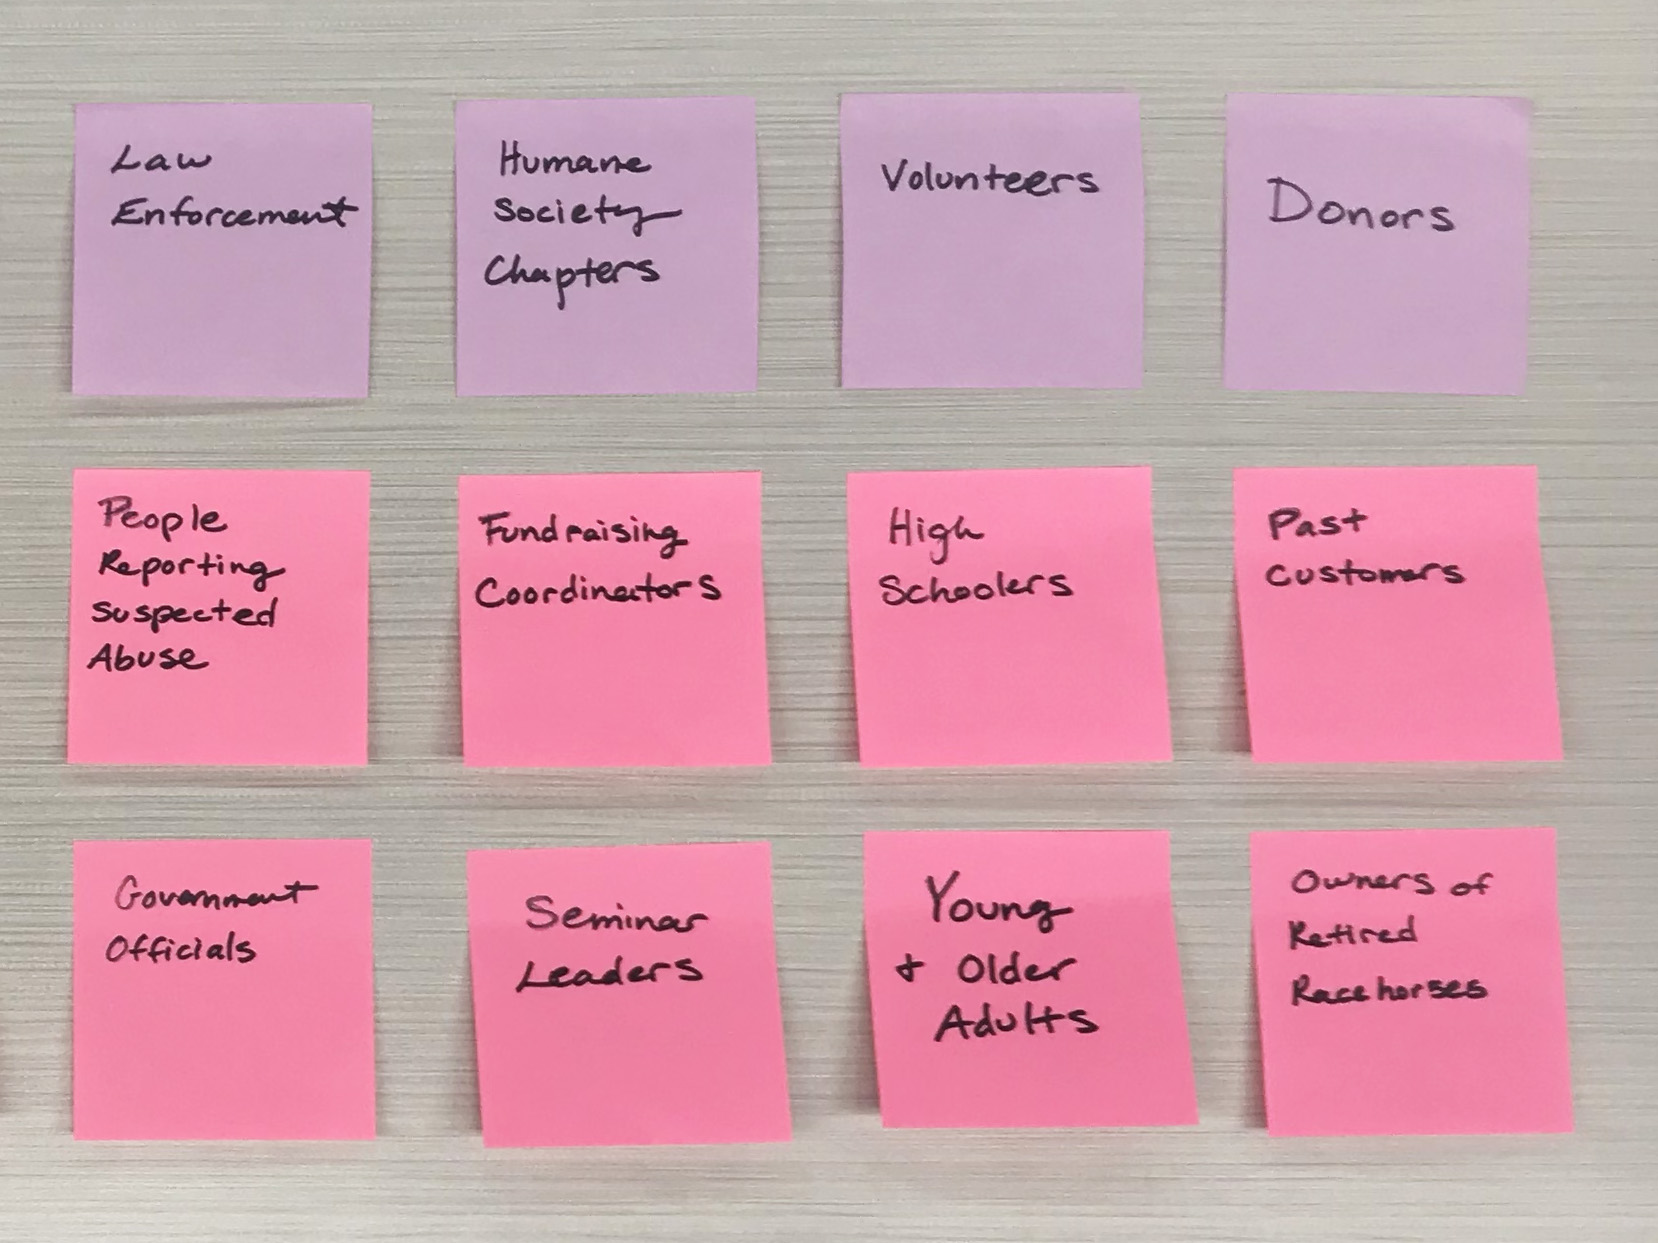 Law
Enforcement
Humane
Society
Chapters
Volunteers
Donors
People
Reporting
Suspected
Abuse
Fundraising
Coordinators
High
Schoolers
Past
Customers
Government
Officials
Seminar
Leaders
Young
+ Older
Adults
Owners of
Retired
Racehorses